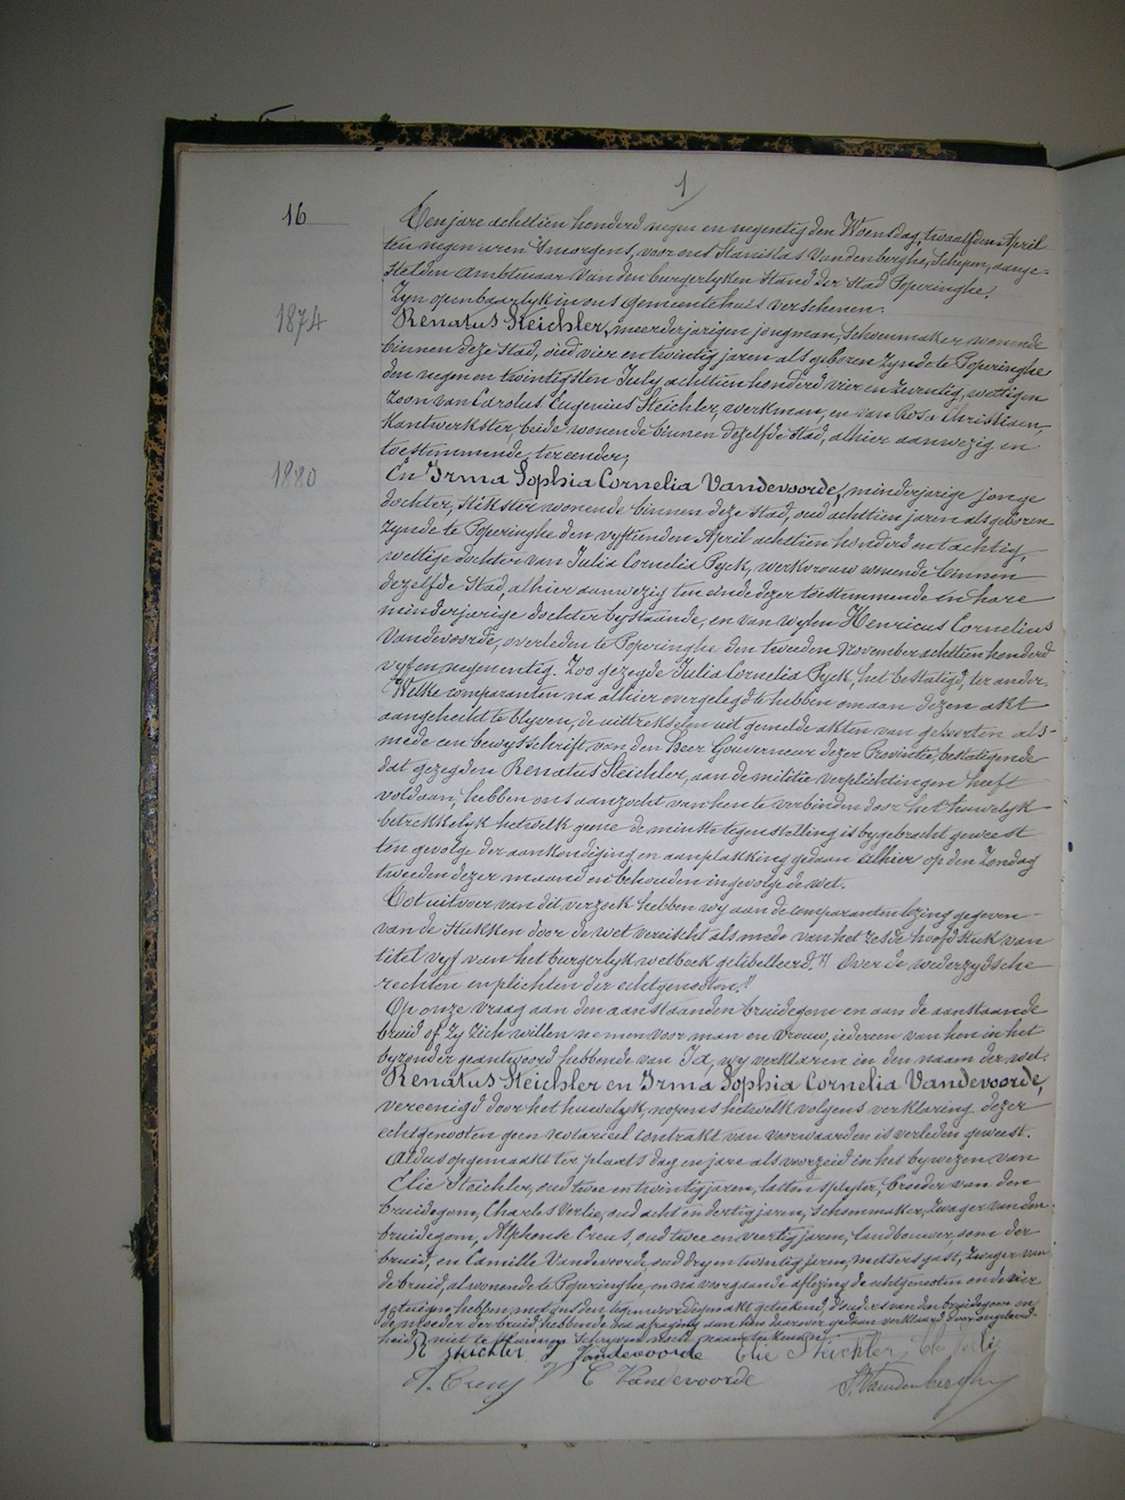 1
16
Ten jare achttien honderd negen en negentig den Woensdag, twaalfden April
ten negen uren 's morgens, voor ons Stanislas Vandenberghe, Schepen, aange=
stelden Ambtenaar van den burgerlyken stand der stad Poperinghe,
Zyn openbaarlyk in ons Gemeentehuis verschenen:
1874
Renatus Steichler, meerderjarigen jongman, schoenmaker wonende
binnen deze stad, oud vier en twintig jaren als geboren zynde te Poperinghe
den negen en twintigsten July achttien honderd vier en zeventig, wettigen
zoon van Carolus Eugenius Steichler, werkman, en van Rosa Christiaen,
Kantwerkster, beide wonende binnen dezelfde stad, alhier aanwezig en
toestemmende, ter eender;
1880
En Irma Sophia Cornelia Vandevoorde, minderjarige jonge
dochter, stikster wonende binnen deze stad, oud achttien jaren als geboren
zynde te Poperinghe den vyftienden April achttien honderd en tachtig,
wettige dochter van Julia Cornelia Pyck, werkvrouw wonende binnen
dezelfde stad, alhier aanwezig ten einde dezer toestemmende en hare
minderjarige dochter bystaande, en van wylen Henricus Cornelius
Vandevoorde, overleden te Poperinghe den tweeden November achttien honderd
vyf en negentig. Zoo gezegde Julia Cornelia Pyck, het bestatigd, ter ander.
Welke comparanten na alhier overgelegd te hebben om aan dezen akt
aangehecht te blyven, de uittrekselen uit gemelde akten van geboorten als-
mede een bewysschrift van den Heer Gouverneur dezer Provincie, bestatigende
dat gezegden Renatus Steichler, aan de militie verplichtingen heeft
voldaan, hebben ons aanzocht van hen te verbinden door het huwelyk
betrekkelyk hetwelk geene de minste tegenstelling is bygebracht geweest
ten gevolge der aankondiging en aanplakking gedaan alhier op den Zondag
tweeden dezer maand en behouden ingevolge de wet.
Tot uitvoer van dit verzoek hebben wy aan de comparanten lezing gegeven
van de stukken door de wet vereischt als mede van het zesde hoofdstuk van
titel vyf van het burgerlyk wetboek getitelleerd: "Over de wederzydsche
rechten en plichten der echtgenooten."
Op onze vraag aan den aanstaanden bruidegom en aan de aanstaande
bruid of zy zich willen nemen voor man en vrouw, iedereen van hen in het
byzonder geantwoord hebbende van Ja, wy verklaren in den naam der wet.
Renatus Steichler en Irma Sophia Cornelia Vandevoorde,
vereenigd door het huwelyk, nopens hetwelk volgens verklaring dezer
echtgenooten geen notarieel contrakt van voorwaarden is verleden geweest.
Aldus opgemaakt ter plaats dag en jare als voorzeid in het bywezen van
Elie Steichler, oud twee en twintig jaren, latten splyter, broeder van den
bruidegom, Charles Verlie, oud acht en dertig jaren, schoenmaker, zwager van den
bruidegom, Alphonse Creus, oud twee en veertig jaren, landbouwer, oom der
bruid, en Camille Vandevoorde, oud dry en twintig jaren, metsers gast, zwager van
de bruid, al wonende te Poperinghe, en na voorgaande aflezing de echtgenooten en de vier
getuigen hebben met ons den tegenwoordigen akt geteekend, d'ouders van den bruidegom en
de moeder der bruid, hebbende na afvraging aan hen daarover gedaan verklaard door ongeleerd-
heid niet te kunnen schryven noch naamteekenen.
R Steichler I Vandevoorde Elie Steichler Ch Verlie
A. Creus C Vandevoorde S. Vandenberghe